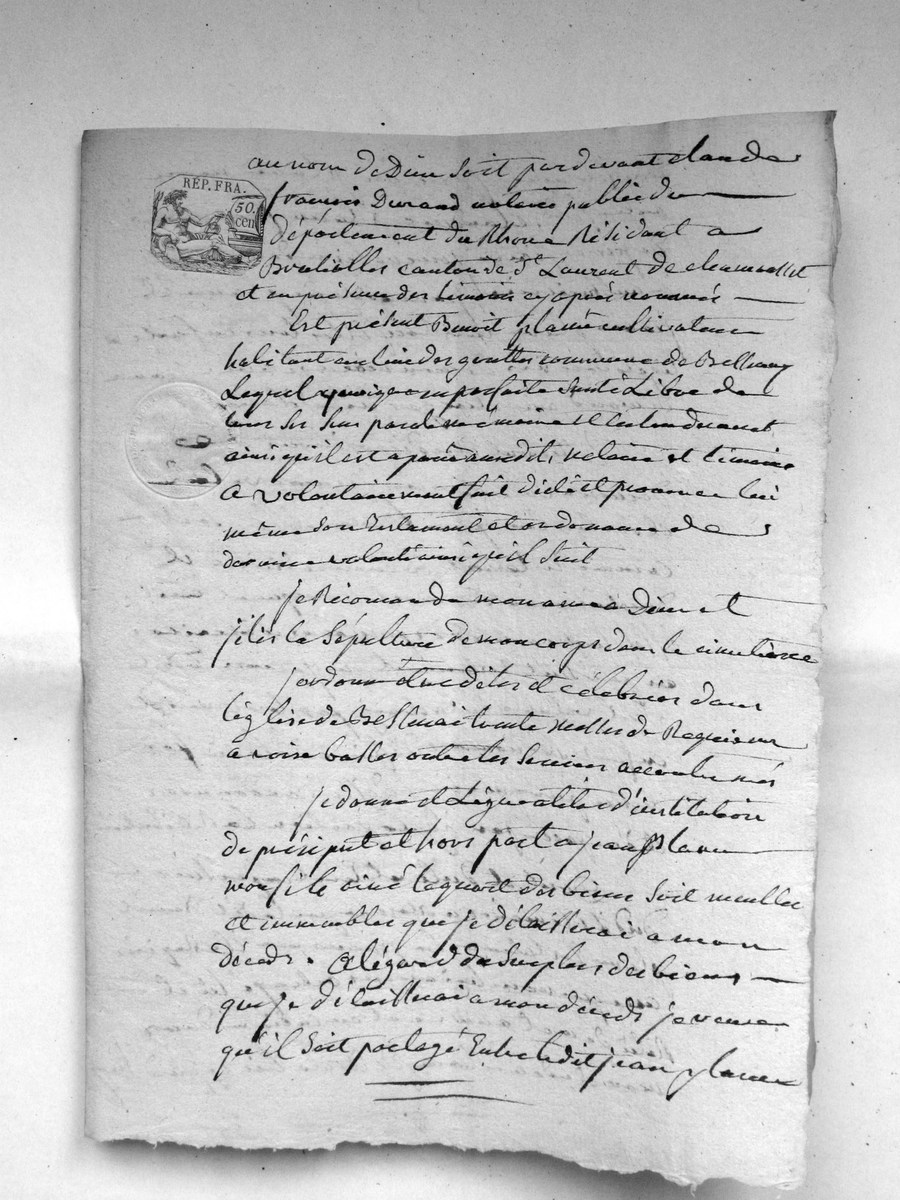 RÉP. FRA.
50.
cen
au nom de Dieu Soit par devant claude
françois Durand notaire public du
département du Rhone Résidant a
cantonde St Laurent de chamousset
et en présence des temoins cy après nommés
Est présent Benoit cultivateur
habitant au lieu des gouttes commune de
Lequel en parfaite Santé Libre de
tous ses Sens parole mémoire et Entendement
ainsi qu'il est aparu audit notaire et témoins
a volontairement fait dicté et prononcé lui
même Son testament et ordonnance de
derniere volonté ainsi qu'il Suit
je Récomande mon ame a Dieu et
la Sépulture de mon corps dans le cimetierre
j'ordonne Etre dites et célébrées dans
l'église de trente messes de Requiem
a voix basses outre les Services accoutumés
je donne et Légue a titre d'institution
de préciput et hors part a jean
mon fils ainé le quart des biens Soit meubles
et immeubles que je délaisserai a mon
décéds. a légard du Surplus des biens
que je délaisserai a mon décéds je veux
qu'il Soit partagé Entre ledit jean